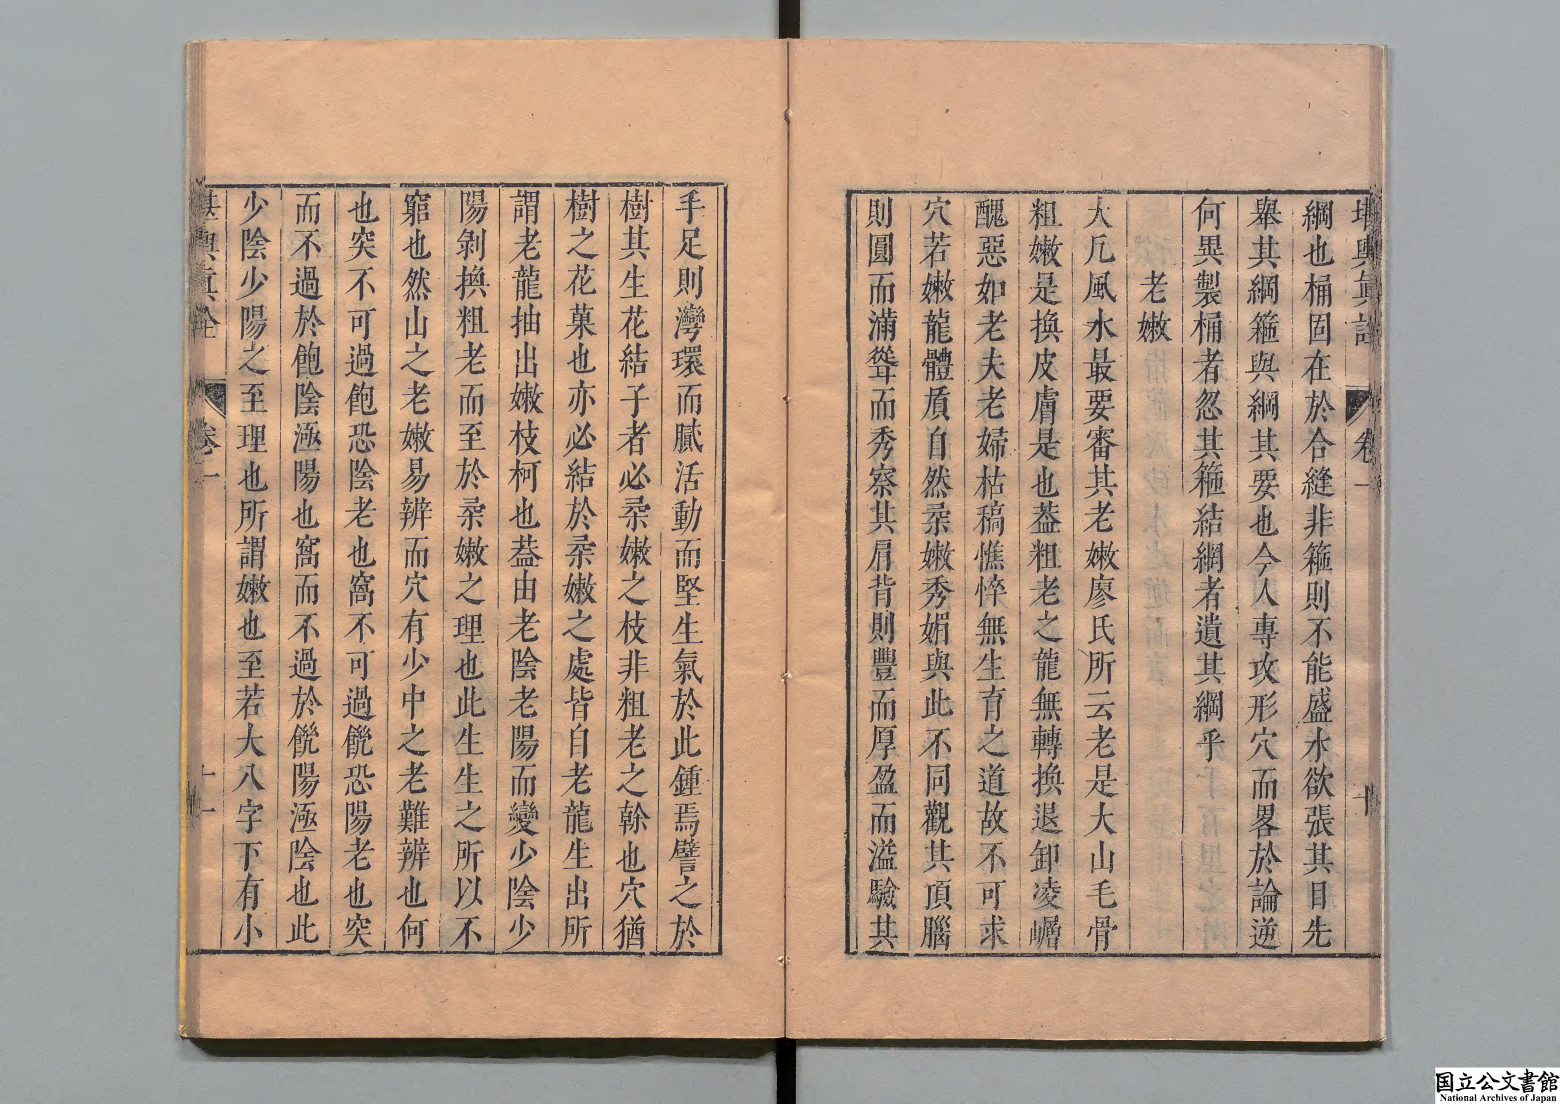 堪輿眞詮 卷一 十
綱也桶固在於合縫非箍則不能盛水欲張其目先
舉其綱箍與綱其要也今人專攻形穴而畧於論逆
何異製桶者忽其箍結綱者遺其綱乎
老嫩
大凢風水最要審其老嫩廖氏所云老是大山毛骨
粗嫩是換皮膚是也葢粗老之龍無轉換退卸凌巇
醜惡如老夫老婦枯稿憔悴無生育之道故不可求
穴若嫩龍體質自然柔嫩秀媚與此不同觀其頂腦
則圓而滿聳而秀察其肩背則豐而厚盈而溢驗其
手足則灣環而膩活動而堅生氣於此鍾焉譬之於
樹其生花結子者必柔嫩之枝非粗老之榦也穴猶
樹之花菓也亦必結於柔嫩之處皆自老龍生出所
謂老龍抽出嫩枝柯也葢由老陰老陽而變少陰少
陽剝換粗老而至於柔嫩之理也此生生之所以不
窮也然山之老嫩易辨而穴有少中之老難辨也何
也突不可過飽恐陰老也窩不可過饒恐陽老也突
而不過於飽陰極陽也窩而不過於饒陽極陰也此
少陰少陽之至理也所謂嫩也至若大八字下有小
堪輿眞詮 卷一 十一
国立公文書館
National Archives of Japan